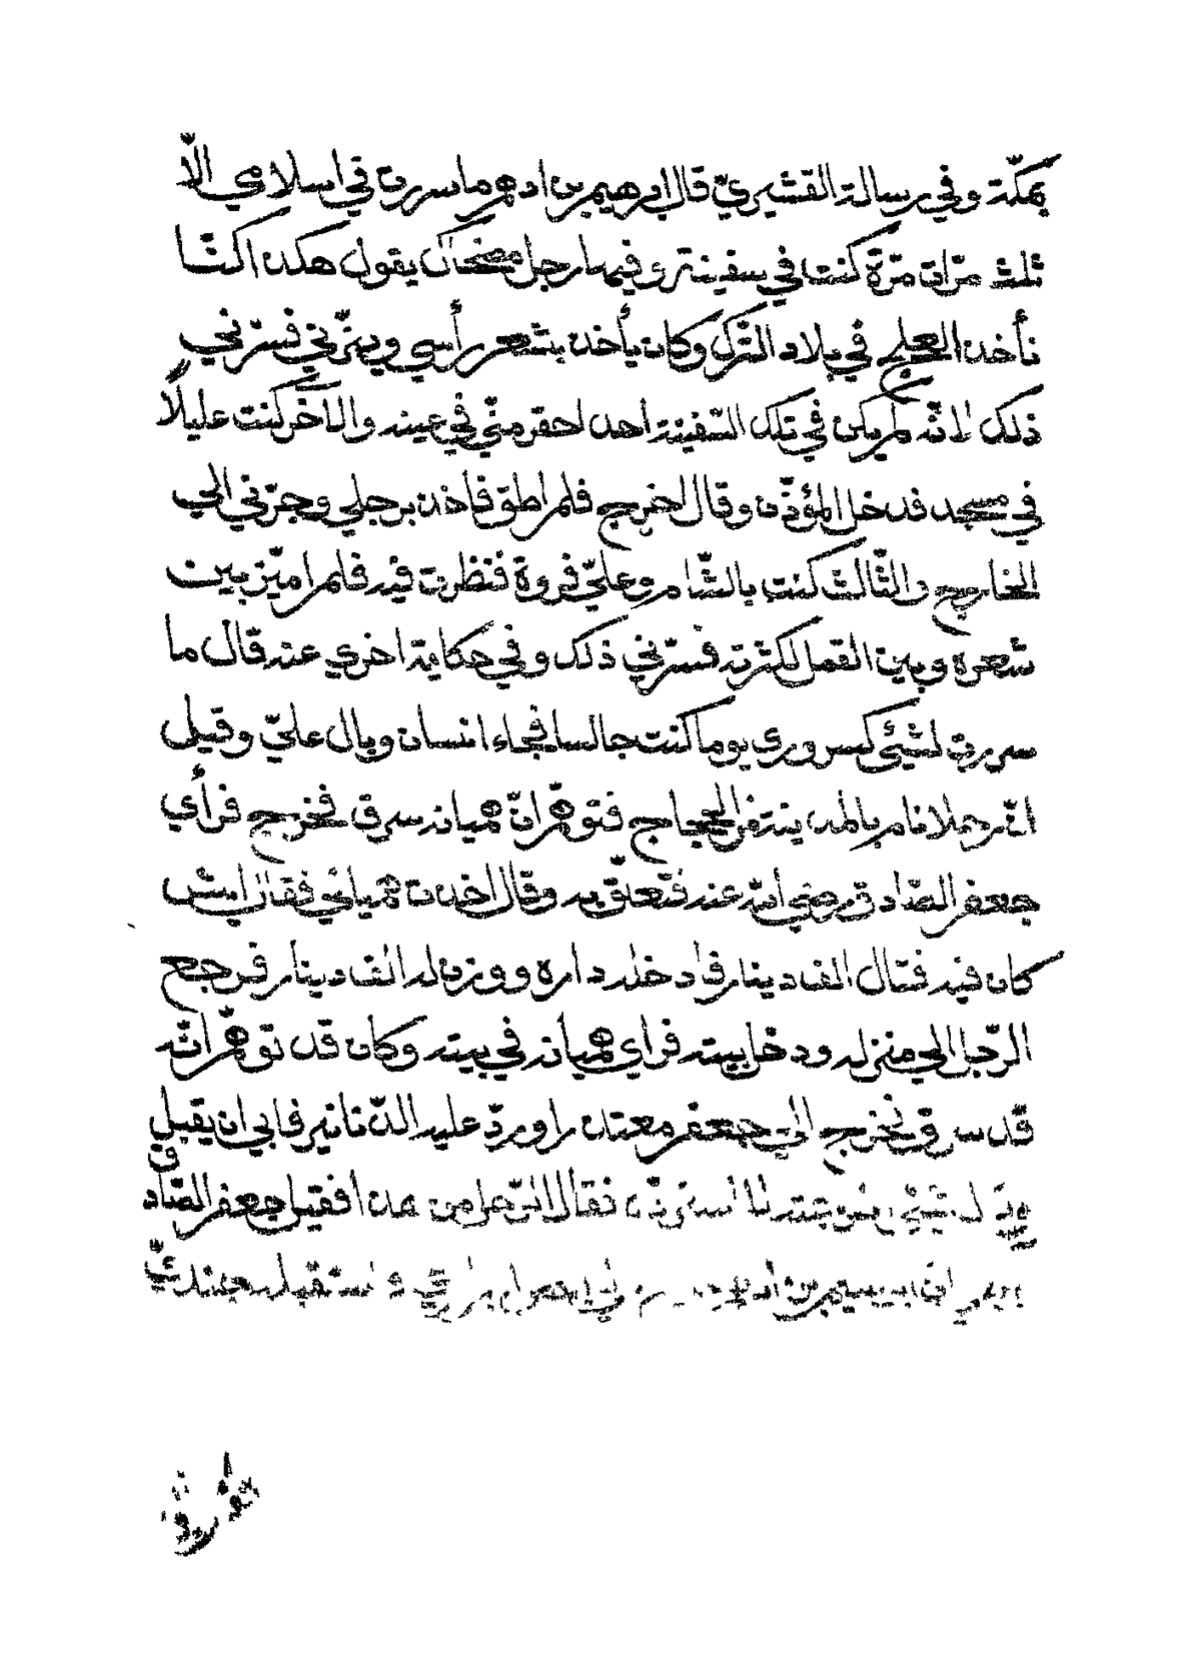 بمكّة وفي رسالة القشيريّ قال ابرهيم بن ادهم ما سررت في اسلامي الّا
ثلث مرّات مرّة كنت في سفينة وفيها رجل مضحاك يقول هكذا كنّا
نأخذ العلج في بلاد الترك وكان يأخذ بشعر رأسي ويهزّني فسرّني
ذلك لانّه لم يكن في تلك السّفينة احد احقر منّي في عينه والاخر كنت عليلًا
في مسجد فدخل المؤذّن وقال اخرج فلم اطق فاخذ برجلي وجرّني الي
الخارج والثّالث كنت بالشّام وعليّ فروة فنظرت فيه فلم اميّز بين
شعره وبين القمل لكثرته فسرّني ذلك وفي حكاية اخري عنه قال ما
سررت لشيئ كسروري يوما كنت جالسا فجاء انسان وبال عليّ وقيل
انّ رجلا نام بالمدينة من الحجاج فتوهّم انّ هميانه سرق فخرج فرأي
جعفر الصّادق رضي الله عنه فتعلّق به وقال اخذت همياني فقال ايش
كان فيه فقال الف دينار فادخله داره ووزن له الف دينار فرجع
الرّجل الي منزله ودخل بيته فراي هميانه في بيته وكان قد توهّم انّه
قد سرق فخرج الي جعفر معتذرا وردّ عليه الدّنانير فابي ان يقبل
وقال شيئ اخرجته لا استردّه فقال الرّجل من هذا فقيل جعفر الصّادق